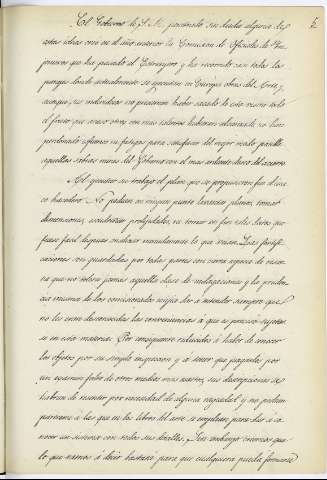 El Gobierno de S.M. poseido sin duda alguna de
estas ideas creó en el año anterior la Comision de Oficiales de
que ha pasado al Extrangero y ha recorrido casi todos los
parages donde actualmente se egecutan en Europa obras del Arte, y
aunque sus individuos no presumen haber sacado de esta vision todo
el fruto que acaso otros con mas talentos hubieran alcanzado no han
perdonado afanes ni fatigas para satisfacer del mejor modo posible
aquellas sabias miras del Gobierno con el mas ardiente deseo del acierto
Al egecutar su trabajo el plan que se propusieron fue el uni
co hacedero. No podian en ningun punto levantar planos, tomar
dimensiones, acuarelar prolijidades, ni tomar en fin estos datos que
fuese facil despues indicar menudamente lo que vieron. Las fortifi
caciones son guardadas por todas partes con cierta especie de reser
va que no tolera jamas aquella clase de indagaciones y la pruden
cia misma de los comisionados exigia de si atender siempre que
no les eran desconocidas las conveniencias a que es preciso sugetarse
en esta materia. Por consiguiente reducidos á haber de conocer
los objetos por su simple inspeccion y á tener que juzgarlos por
un examen falto de otros medios mas exactos, sus descripciones se
habran de resentir por necesidad de alguna vaguedad y no podran
parecerse á las que en los libros del arte se emplean para dar á co
nocer un sistema con todos sus detalles. Sin embargo creemos que
lo que vamos á decir bastará para que cualquiera pueda formarse